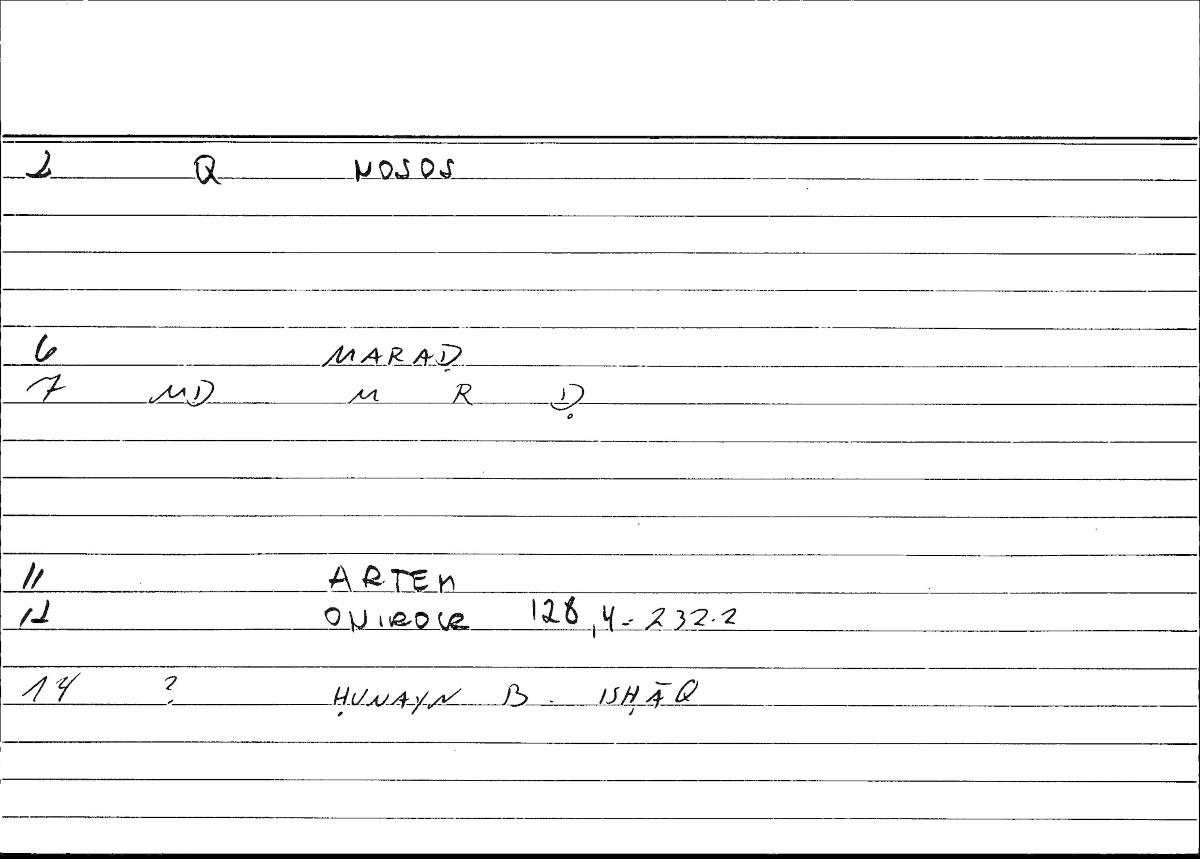 2 Q NOSOS
6 MARAḌ
7 MD M R Ḍ
11 ARTEM
12 ONIROCR 128,4-232.2
14 ? ḤUNAYN B. ISḤĀQ